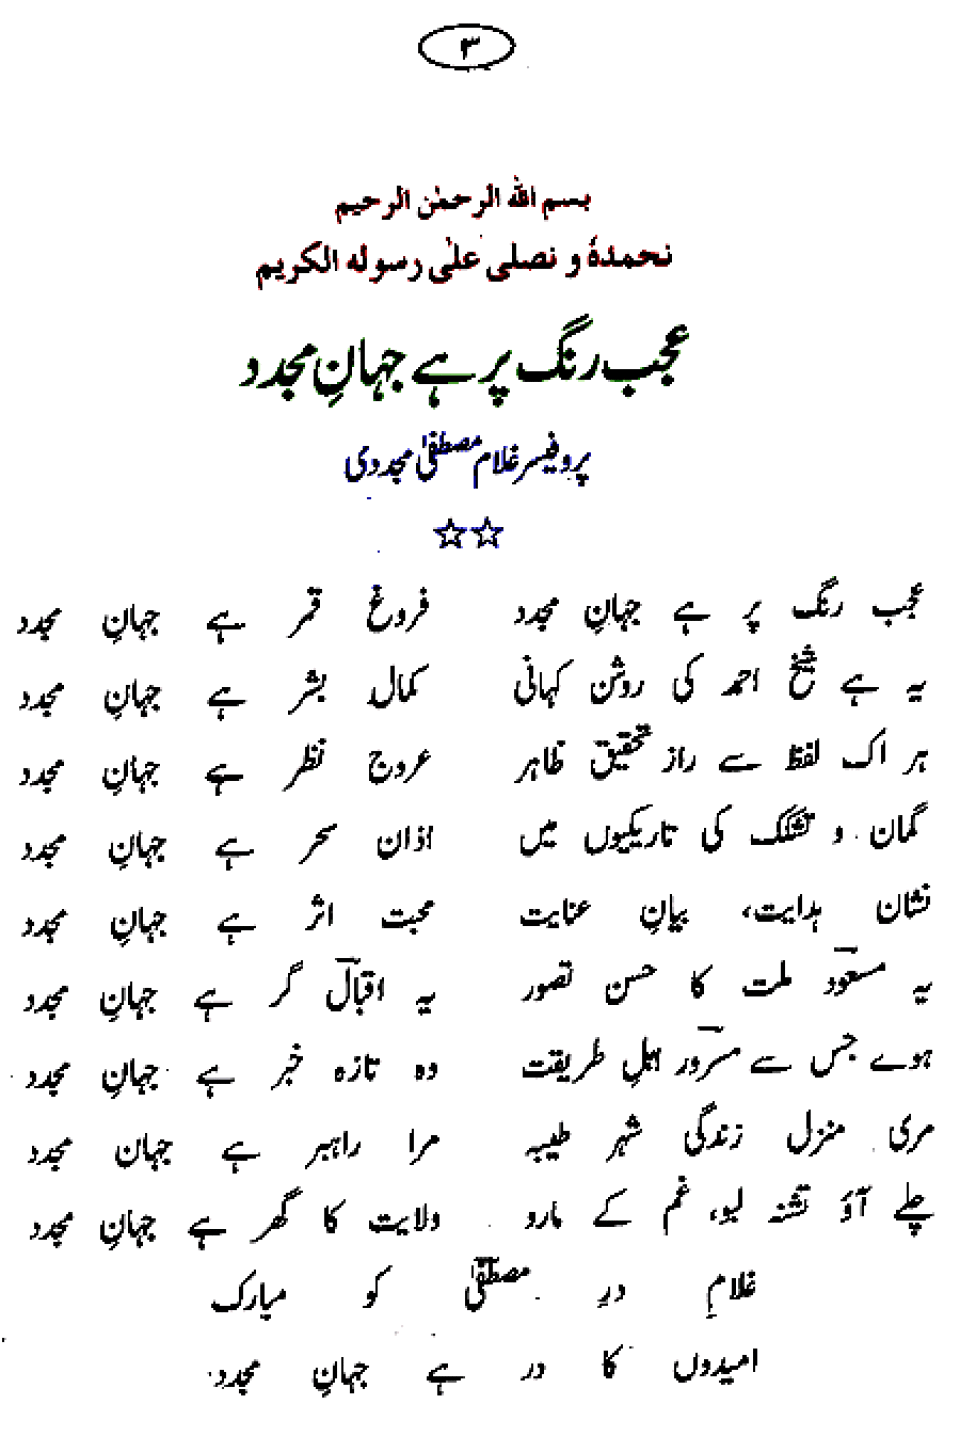 ۳
بسم الله الرحمٰن الرحیم
نحمدہٗ و نصلی علٰی رسولہ الکریم
عجب رنگ پر ہے جہانِ مجدد
پروفیسر غلام مصطفیٰ مجددی
☆☆
عجب رنگ پر ہے جہانِ مجدد فروغِ قمر ہے جہانِ مجدد
یہ ہے شیخ احمد کی روشن کہانی کمالِ بشر ہے جہانِ مجدد
ہر اک لفظ سے رازِ تحقیق ظاہر عروجِ نظر ہے جہانِ مجدد
گمان و تشکک کی تاریکیوں میں اذان سحر ہے جہانِ مجدد
نشان ہدایت، بیانِ عنایت محبت اثر ہے جہانِ مجدد
یہ مسعودِ ملت کا حسن تصور یہ اقبال گر ہے جہانِ مجدد
ہوے جس سے مسرور اہلِ طریقت وہ تازہ خبر ہے جہانِ مجدد
مری منزل زندگی شہر طیبہ مرا راہبر ہے جہان مجدد
چلے آؤ تشنہ لبو، غم کے مارو ولایت کا گھر ہے جہانِ مجدد
غلامِ درِ مصطفیٰ کو مبارک
امیدوں کا در ہے جہانِ مجدد